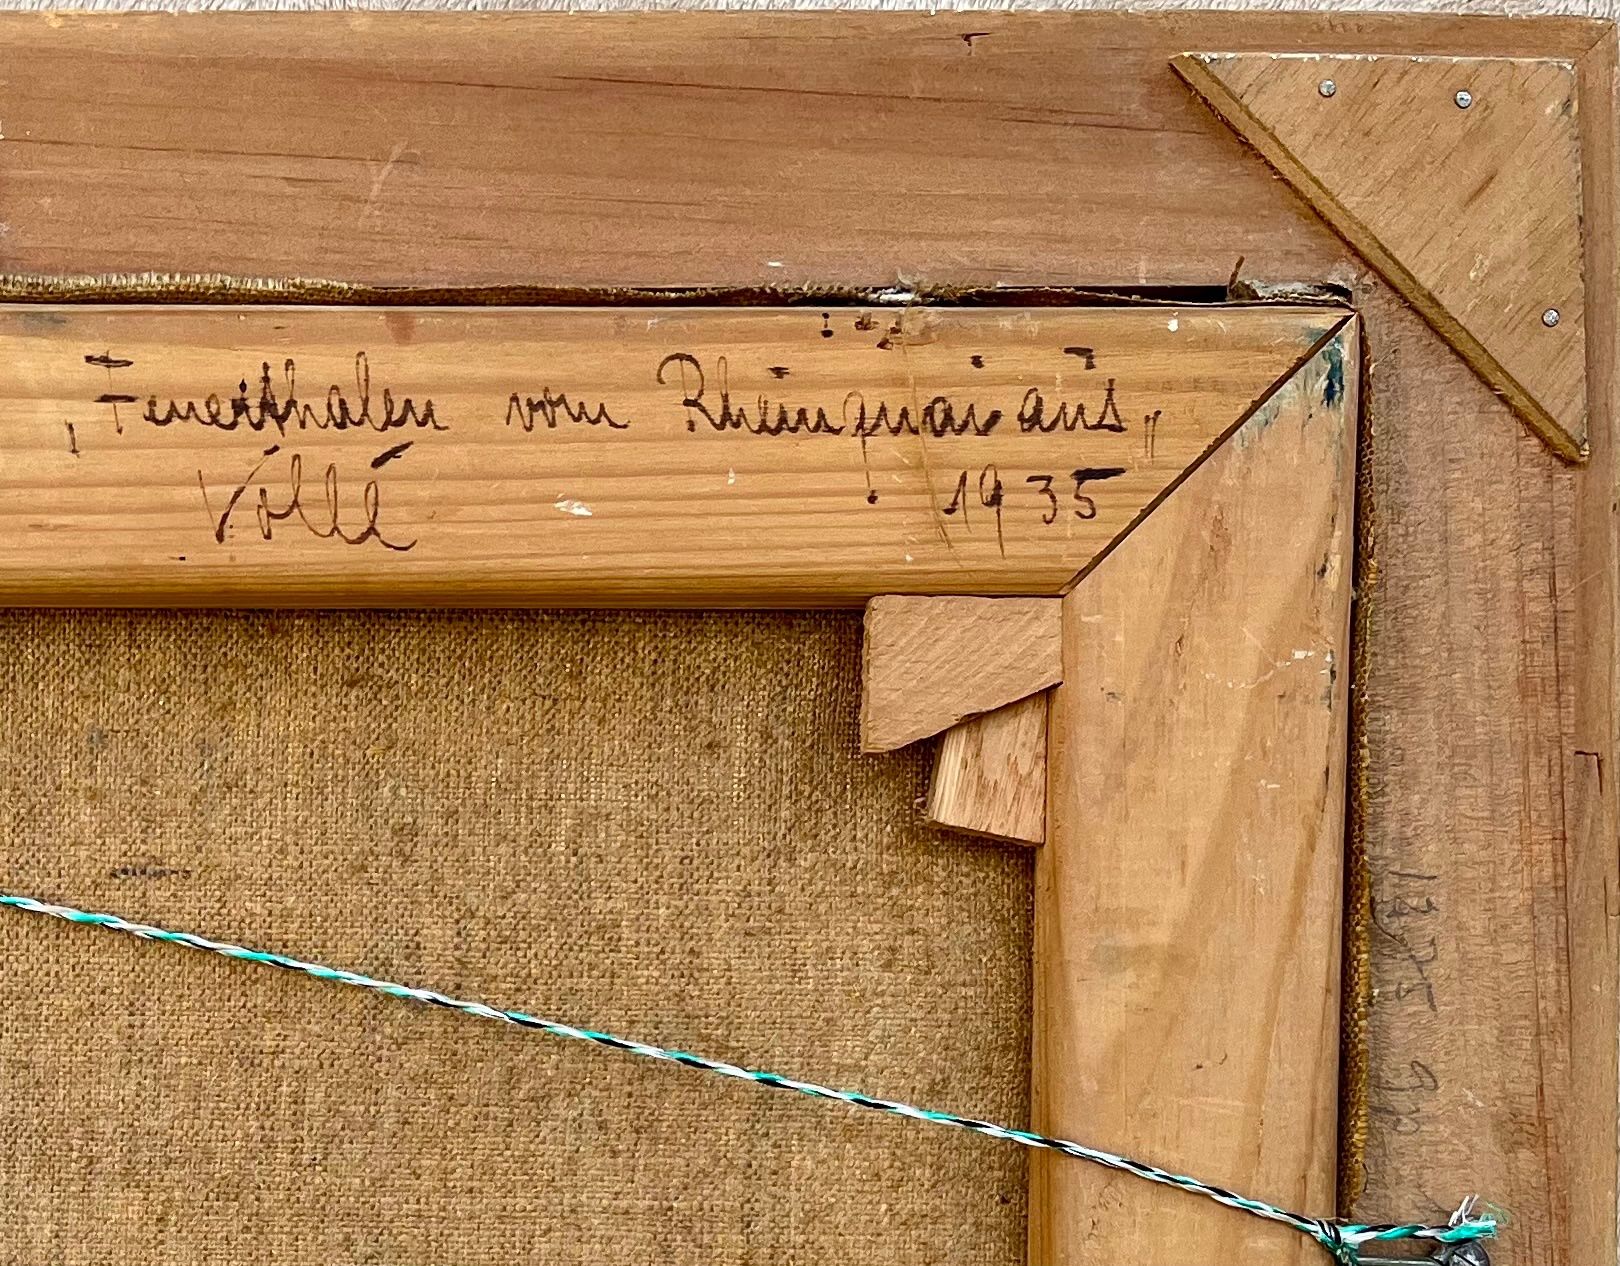 „Feuerthalen vom Rheinquai aus„
Vollé 1935